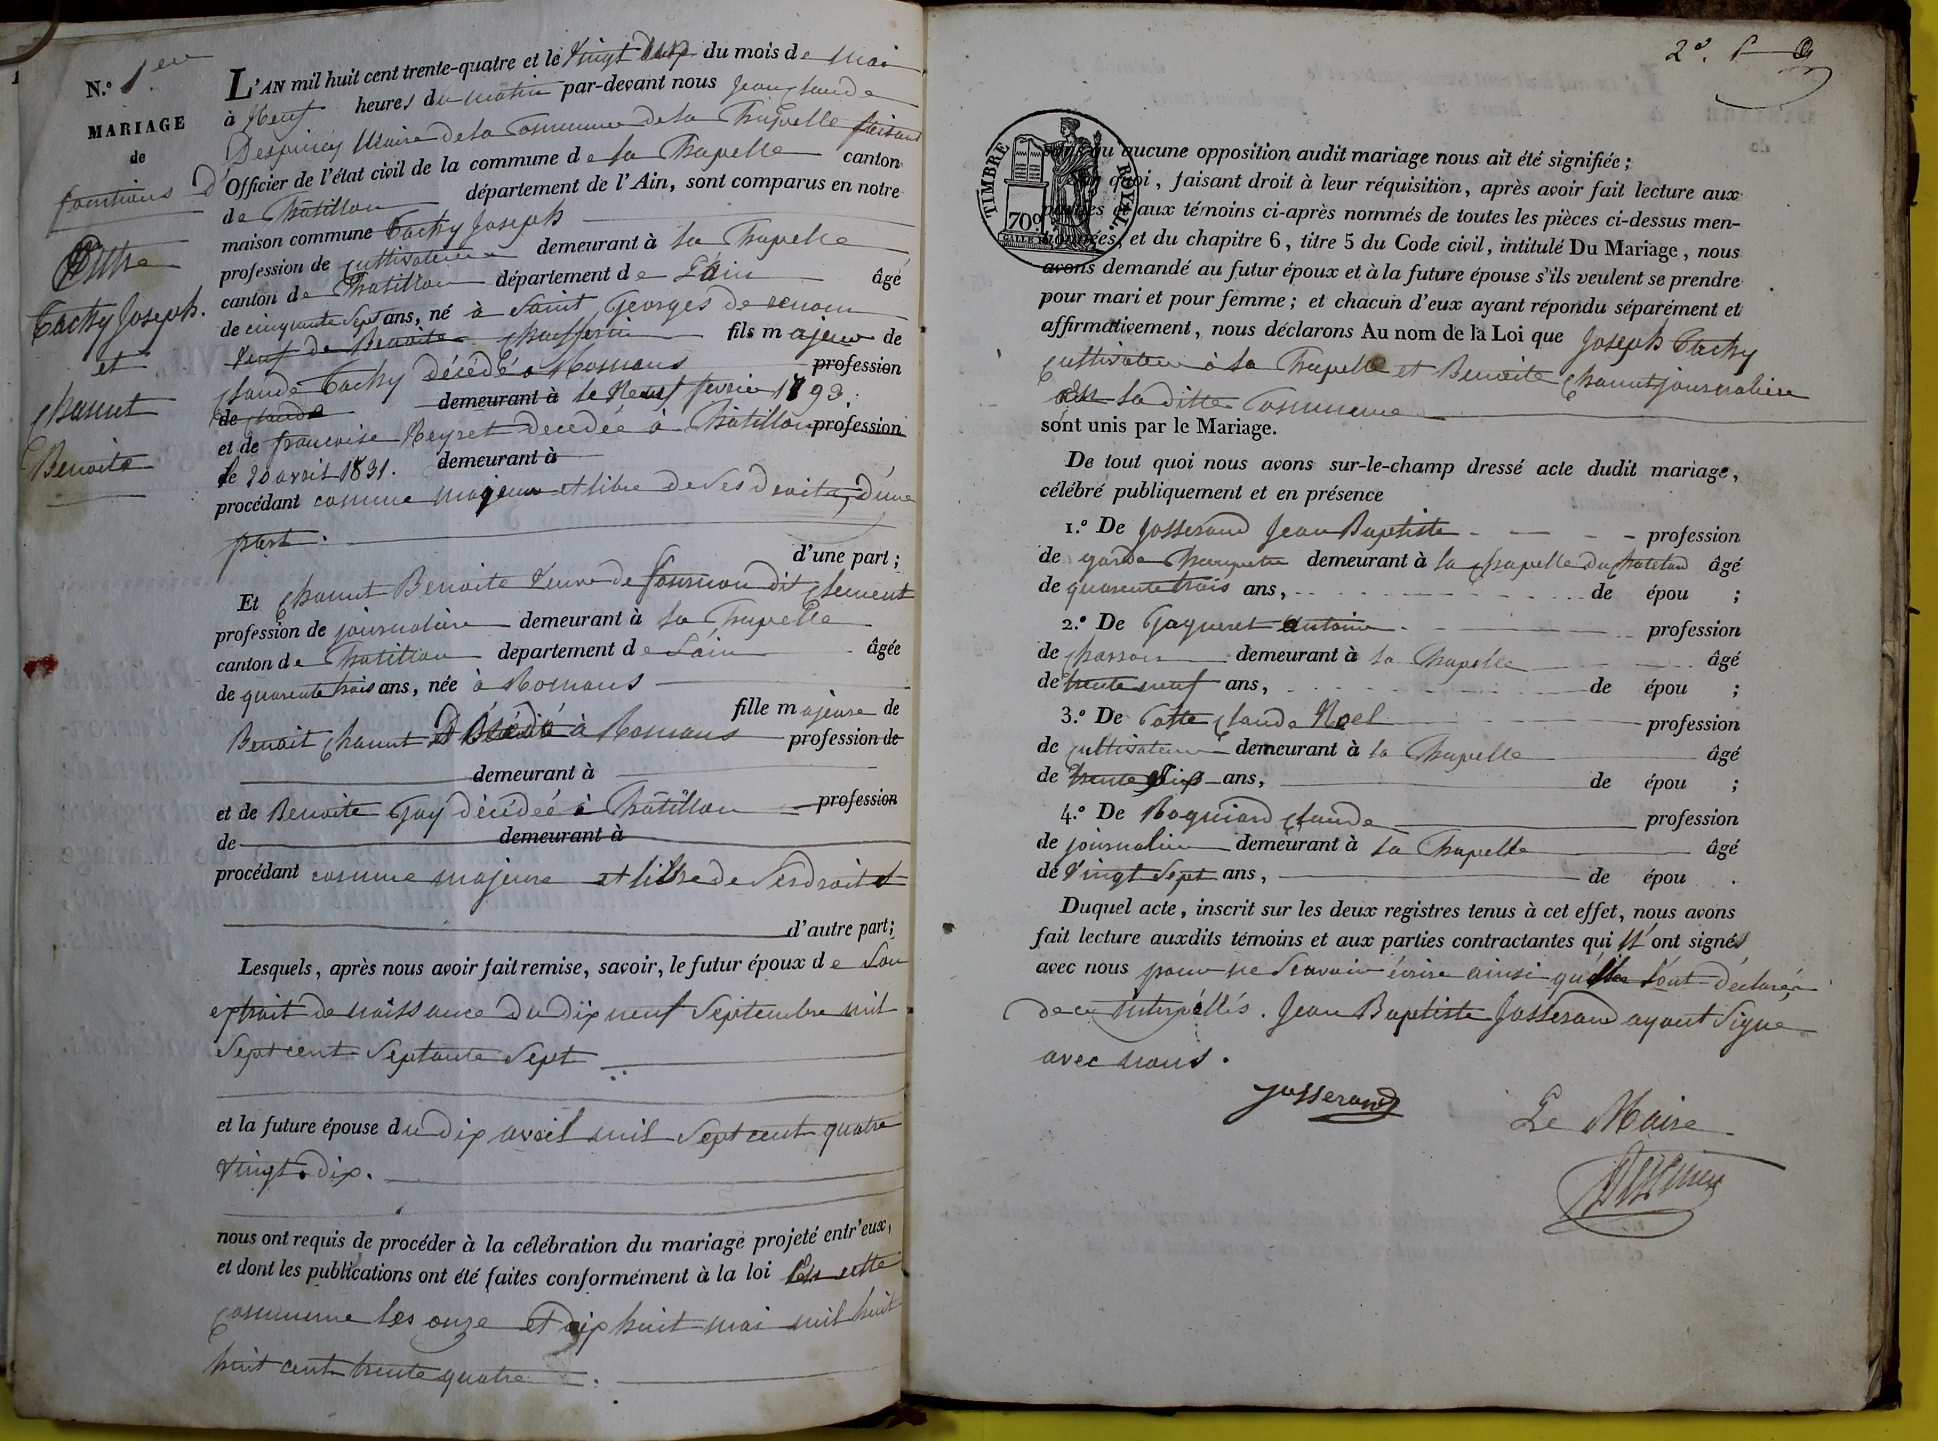 N.º 1er
MARIAGE
de
Entre
Tachy Joseph.
et
Chanut
Benoite
L'AN mil huit cent trente-quatre et le Vingt du mois de Mai
à Neuf heures du matin par-devant nous Jean Claude
Despiney Maire de la Commune de la Chapelle faisant
fonctions d'Officier de l'état civil de la commune de la Chapelle canton
de Châtillon département de l'Ain, sont comparus en notre
maison commune Tachy Joseph
profession de Cultivateur demeurant à la Chapelle
canton de Chatillon département de L'ain âgé
de cinquante Sept ans, né à Saint Georges de renom
Veuf de Benoite fils majeur de
Claude Tachy décédé à Romans profession
de Claude demeurant à le Neuf fevrier 1793.
et de francoise Reyret decedée à Châtillon profession
le 20 avril 1831. demeurant à
procédant comme majeur et libre de Ses droits, d'une
part.
d'une part;
Et Chanut Benoite Veuve de fournon dit Clement
profession de journalière demeurant à la Chapelle
canton de Chatillon département de L'ain âgée
de quarente trois ans, née à Romans
fille majeure de
Benoit Chanut Décédé à Romans profession de
demeurant à
et de Benoite Gay décédée à Châtillon profession
de demeurant à
procédant comme majeure et libre de Ses droits
d'autre part;
Lesquels, après nous avoir fait remise, savoir, le futur époux de Son
extrait de naissance du dix neuf Septembre mil
Sept cent Septante Sept
et la future épouse du dix avril mil Sept cent quatre
Vingt dix.
nous ont requis de procéder à la célébration du mariage projeté entr'eux,
et dont les publications ont été faites conformément à la loi En cette
Commune les onze et dix huit mai mil huit
huit cent trente quatre.
2e.
TIMBRE ROYAL
70c.
aucune opposition audit mariage nous ait été signifiée;
quoi, faisant droit à leur réquisition, après avoir fait lecture aux
aux témoins ci-après nommés de toutes les pièces ci-dessus men-
et du chapitre 6, titre 5 du Code civil, intitulé Du Mariage, nous
avons demandé au futur époux et à la future épouse s'ils veulent se prendre
pour mari et pour femme; et chacun d'eux ayant répondu séparément et
affirmativement, nous déclarons Au nom de la Loi que Joseph Tachy
Cultivateur à la Chapelle et Benoite Chanut journalière
En la ditte Commune
sont unis par le Mariage.
De tout quoi nous avons sur-le-champ dressé acte dudit mariage,
célébré publiquement et en présence
1.º De Josserand Jean Baptiste profession
de garde Champetre demeurant à la Chapelle du Chatelard âgé
de quarente trois ans, de épou ;
2.º De Gayneret Antoine profession
de Charron demeurant à la Chapelle âgé
de trente neuf ans, de épou ;
3.º De Claude Noel profession
de Cultivateur demeurant à la Chapelle âgé
de trente Six ans, de épou ;
4.º De Roguiard Claude profession
de journalier demeurant à la Chapelle âgé
de Vingt Sept ans, de épou .
Duquel acte, inscrit sur les deux registres tenus à cet effet, nous avons
fait lecture auxdits témoins et aux parties contractantes qui N'ont signés
avec nous pour ne Scavoir écrire ainsi qu'ils l'ont déclaré,
de ce Interpellés. Jean Baptiste Josserand ayant Signe
avec nous.
Josserand
Le Maire
Despiney